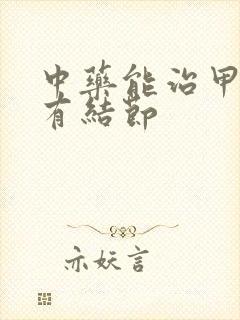 中藥能治甲
有結節
亦妖言